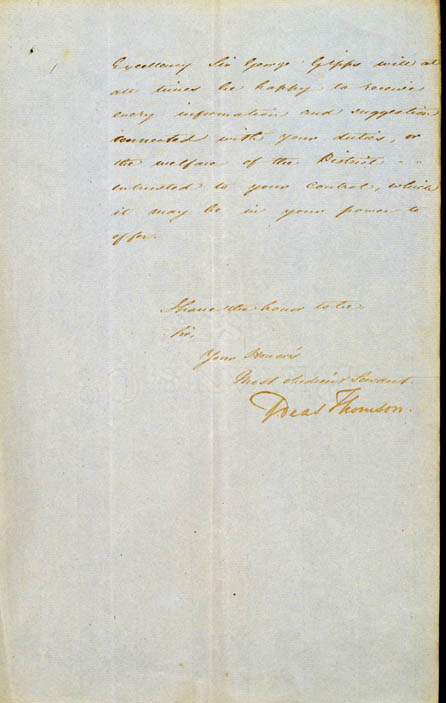 Excellency Sir George Gipps will at
all times be happy to receive
every information and suggestion
connected with your duties, or
the welfare of the District
intrusted to your control, which
it may be in your power to
offer.
I have the honor to be
Sir,
Your Honor's
Most obedient Servant.
E Deas Thomson.